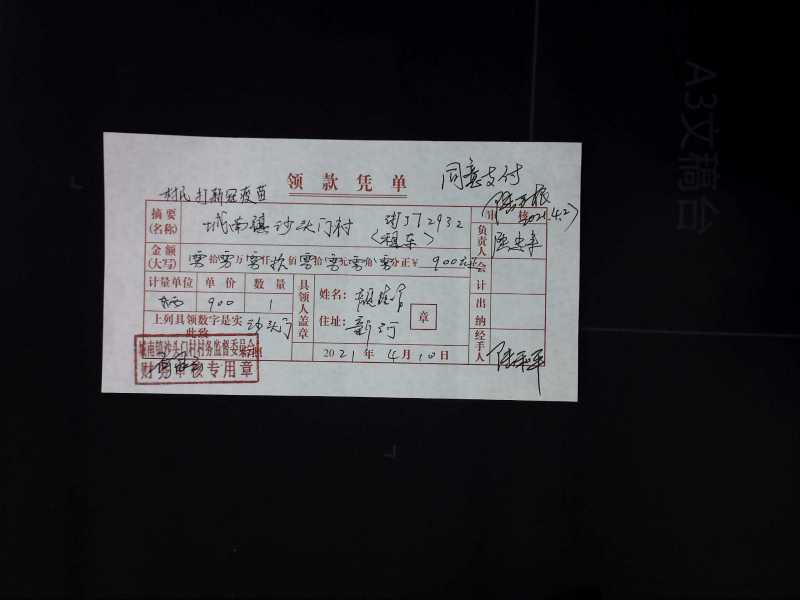 领款凭单
同意支付
村民打新冠疫苗
2021.4.2
摘要 城南镇沙头门村 372932 审核
(名称) (租车) 负责人
金额
(大写) 零拾零万零仟玖佰零拾零元零角零分正¥ 900元正 会计
计量单位 单价 数量 具领人盖章 姓名:
辆 900 1 出纳
上列具领数字是实 沙头门 住址: 新河 章
此致
城南镇沙头门村村务监督委员会
财务审核专用章
2021年4月10日 经手人
A3文稿台